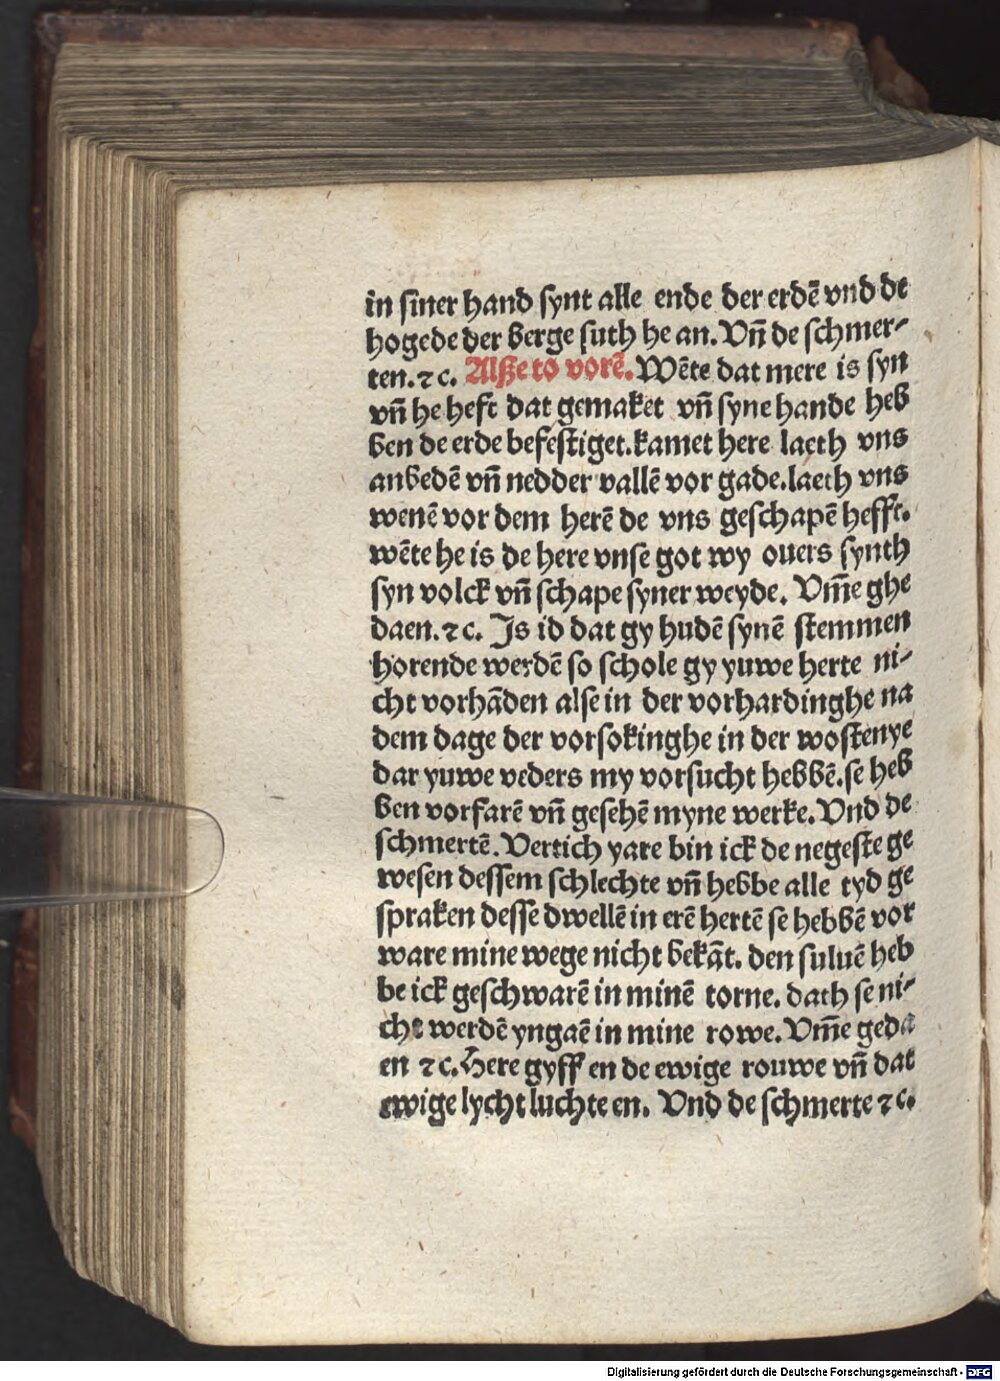 in siner hand synt alle ende der erdē vnd de
hogede der berge suth he an. Vn̄ de schmer⸗
ten. ⁊ c. Alße to vorē. Wēte dat mere is syn
vn̄ he heft dat gemaket vn̄ syne hande heb
ben de erde befestiget. kamet here laeth vns
anbedē vn̄ nedder vallē vor gade. laeth vns
wenē vor dem herē de vns geschapē hefft.
wēte he is de here vnse got wy ouers synth
syn volck vn̄ schape syner weyde. Vm̄e ghe
daen. ⁊ c. Js id dat gy hudē synē stemmen
horende werdē so schole gy yuwe herte ni⸗
cht vorhāden alse in der vorhardinghe na
dem dage der vorsokinghe in der wostenye
dar yuwe veders my vorsucht hebbē. se heb
ben vorfarē vn̄ gesehē myne werke. Vnd de
schmertē. Vertich yare bin ick de negeste ge
wesen dessem schlechte vn̄ hebbe alle tyd ge
spraken desse dwellē in erē hertē se hebbē vor
ware mine wege nicht bekāt. den suluē heb
be ick geschwarē in minē torne. dath se ni⸗
cht werdē yngaē in mine rowe. Vm̄e geda
en ⁊ c. Here gyff en de ewige rouwe vn̄ dat
ewige lycht luchte en. Vnd de schmerte ⁊ c.
Digitalisierung gefördert durch die Deutsche Forschungsgemeinschaft - DFG